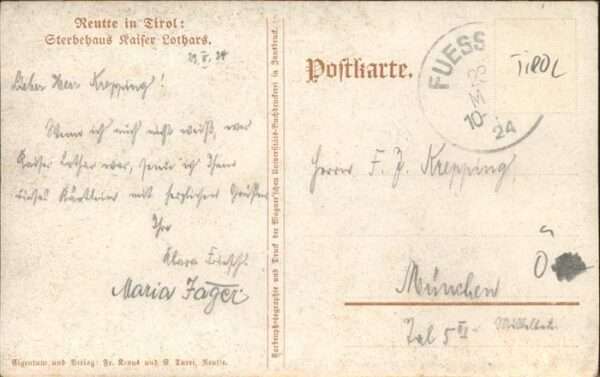 Reutte in Tirol:
Sterbehaus Kaiser Lothars.
Lieber Herr Krepping!
Wenn ich auch nicht weiß, wer
Kaiser Lothar war, sende ich Ihnen
dieses Kärtchen mit herzlichen Grüßen
Ihre
Klara
Maria Jäger
Eigentum und Verlag: Fr. Kraus und
Reutte.
Farbenphotographie und Druck der Wagner'schen Universitäts-Buchdruckerei in Innsbruck.
Postkarte.
FUESS
10
24
TIROL
Herrn F. J. Krepping
München
Tal 5 III